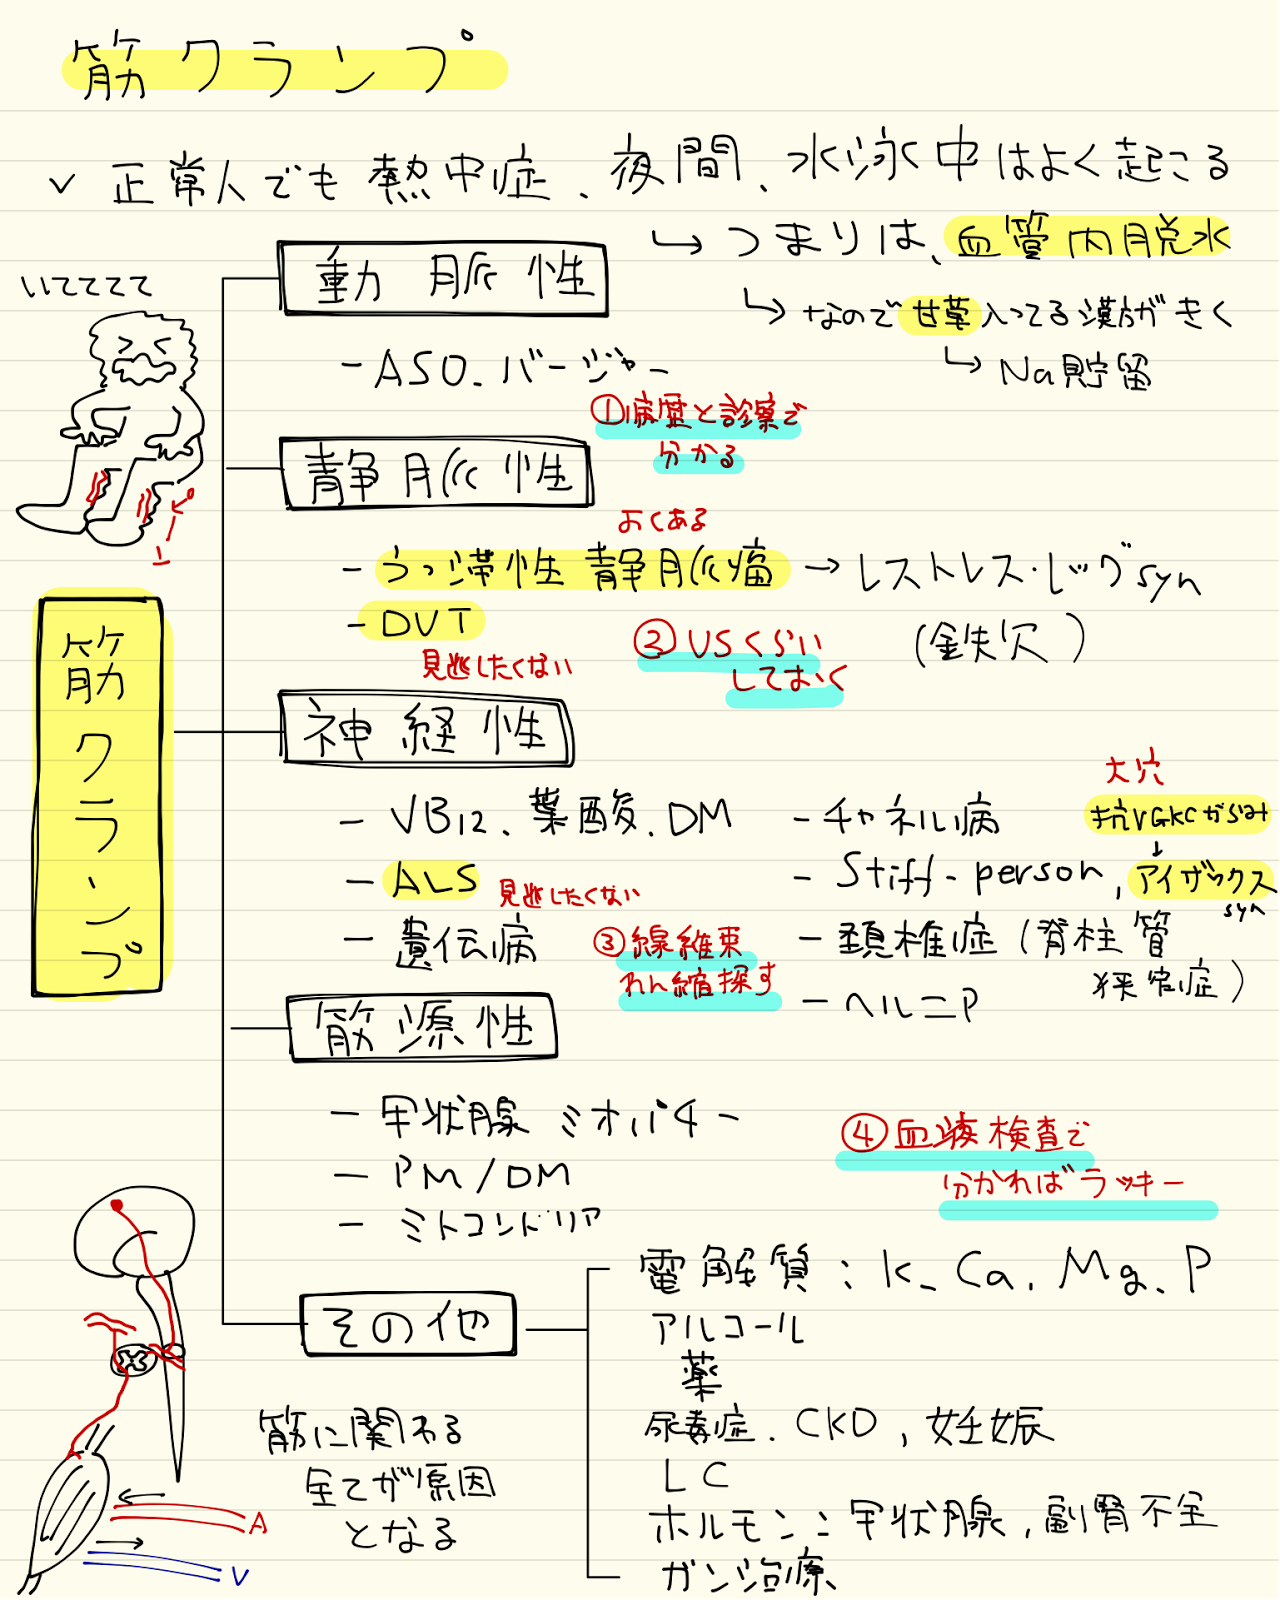 筋クランプ
✓ 正常人でも熱中症、夜間、水泳中はよく起こる
↳ つまりは、血管内脱水
↳ なので甘草入ってる漢方がきく
↳ Na貯留
いててててて
動脈性
- ASO、バージャー
①病歴と診察で
分かる
静脈性
よくある
- うっ滞性静脈瘤 → レストレス・レッグsyn
(鉄欠)
- DVT
見逃したくない
②USくらい
しておく
筋クランプ
神経性
- VB12、葉酸、DM
- ALS 見逃したくない
- 遺伝病
③線維束
れん縮探す
- チャネル病
大穴
抗VGKCがらみ
↓
- Stiff-person, アイザックス
syn
- 頚椎症(脊柱管
狭窄症)
- ヘルニア
筋源性
- 甲状腺ミオパチー
- PM/DM
- ミトコンドリア
④血液検査で
分かればラッキー
その他
電解質:K、Ca、Mg、P
アルコール
薬
尿毒症、CKD、妊娠
LC
ホルモン:甲状腺、副腎不全
ガン治療
筋に関わる
全てが原因
となる
A
V